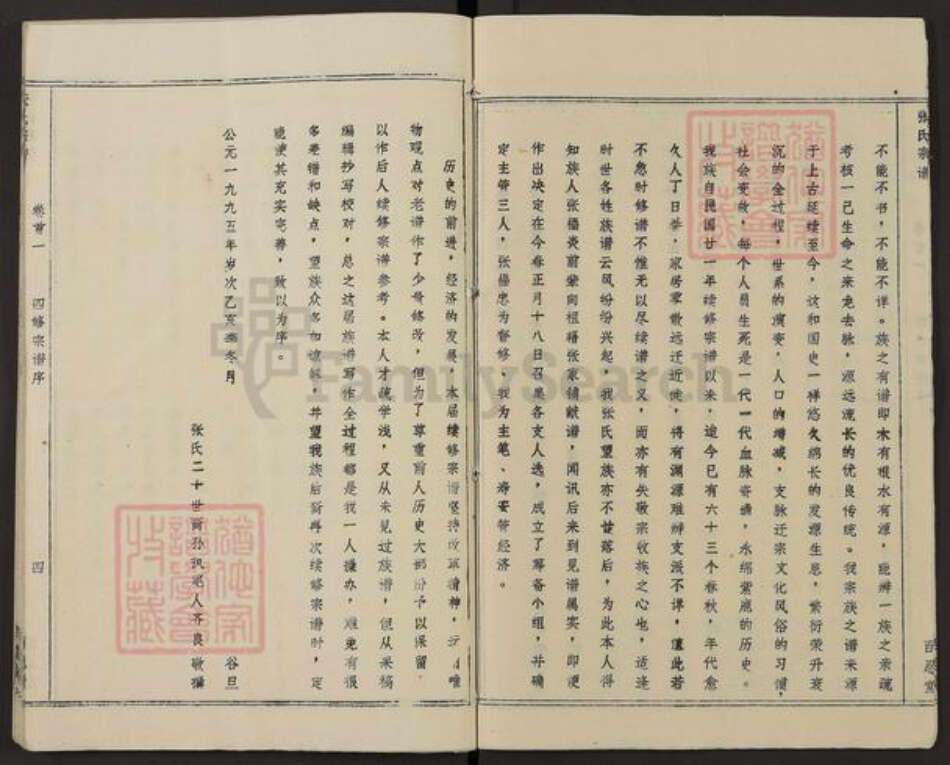 张氏宗谱
不能不书，不能不详。族之有谱即木有根水有源，能辨一族之亲疏
考核一己生命之来龙去脉，源远流长的优良传统。我宗族之谱来源
于上古延续至今，这和国史一样悠久绵长的发源生息，繁衍荣升衰
沉的全过程，世系的演变，人口的增减，支脉迁宗文化风俗的习惯，
社会变故，每个人员生死是一代一代血脉奇，永绵紫庞的历史。
我族自民国廿一年续修宗谱以来，迨今已有六十三个春秋，年代愈
久人丁日举，家居零散远迁近徙，将有渊源难辨支派不谆，值此若
不急时修谱不惟无以尽续谱之义，而亦有失敬宗收族之心也，适逢
时世各姓族谱云风纷纷兴起，我张氏望族亦不甘落后，为此本人得
知族人张福炎前辈向祖籍张家铺献谱，闻讯后来到见谱属实，即便
作出决定在今春正月十八日召集各支人选，成立了筹备小组，并确
定主管三人，张福忠为督修，我为主笔、寿安管经济。
百忍堂
历史的前进，经济的发展，本届续修宗谱坚持改革精神，唯
物观点对老谱作了少骨修改，但为了尊重前人历史大部份予以保留
以作后人续修宗谱参考。本人才疏学浅，又从未见过族谱，但从来稿
编辑抄写校对，总之这届族谱写作全过程都是我一人操办，难免有很
多差错和缺点，望族众多加谅解，并望我族后裔再次续修宗谱时，定
能使其充实完善，致以为序。
公元一九九五年岁次乙亥冬月 谷旦
张氏二十世裔孙执笔人齐良敬撰
卷首一 四修宗谱序 四
FamilySearch